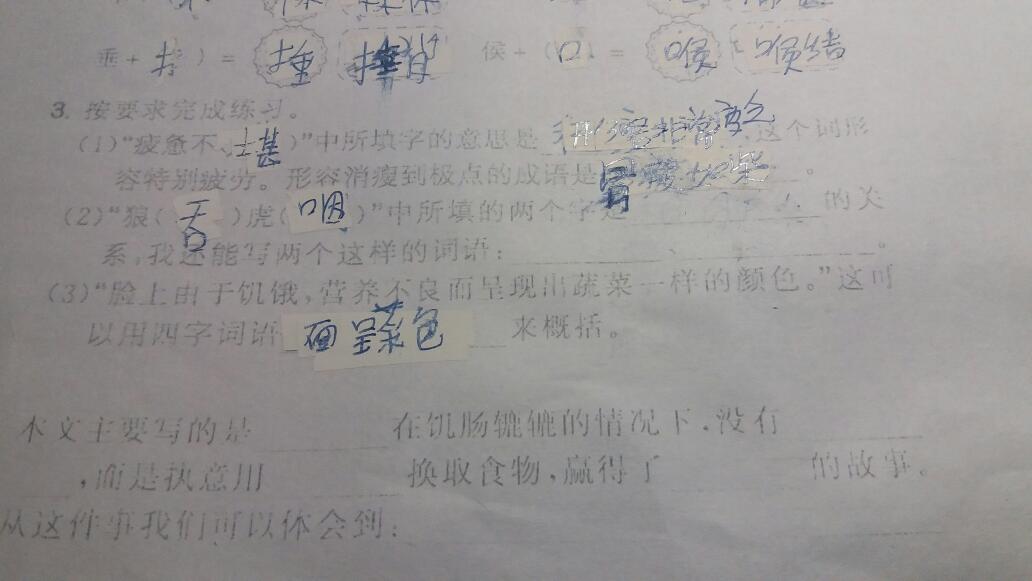 垂+(扌)= 捶 捶背 侯+(口)= 喉 喉结
3. 按要求完成练习。
(1)“疲惫不(堪)”中所填字的意思是 这个词形
容特别疲劳。形容消瘦到极点的成语是骨瘦如柴。
(2)“狼(吞)虎(咽)”中所填的两个字是 的关
系,我还能写两个这样的词语: 、 。
(3)“脸上由于饥饿,营养不良而呈现出蔬菜一样的颜色。”这可
以用四字词语面呈菜色来概括。
本文主要写的是 在饥肠辘辘的情况下,没有
,而是执意用 换取食物,赢得了 的故事。
从这件事我们可以体会到: